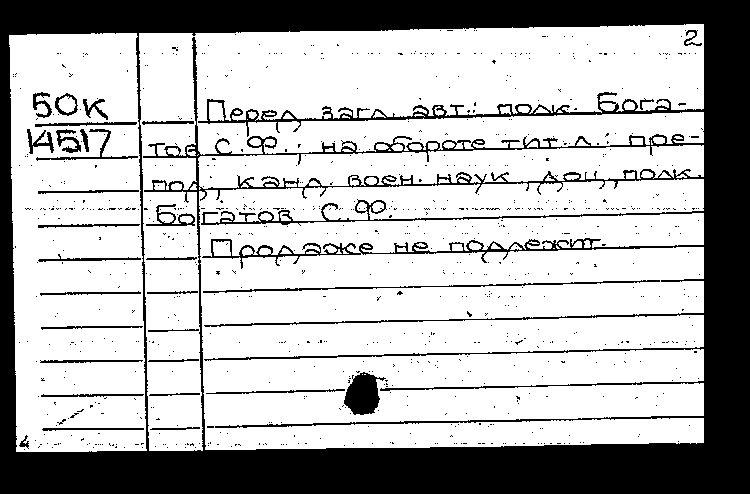 2
50К
14517
Перед загл. авт.: полк. Бога-
тов С.Ф.; на обороте тит.л.: пре-
под., канд. воен. наук, доц., полк.
Богатов С.Ф.
Продаже не подлежит.
4